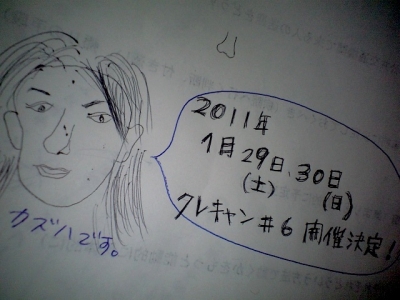 2011年
1月29日、30日
(土) (日)
クレキャン#6 開催決定!
カズハです。